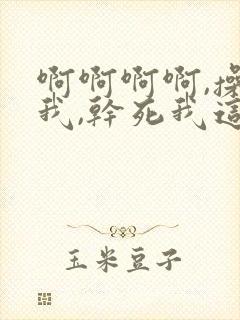 啊啊啊啊,操
我,幹死我這
玉米豆子